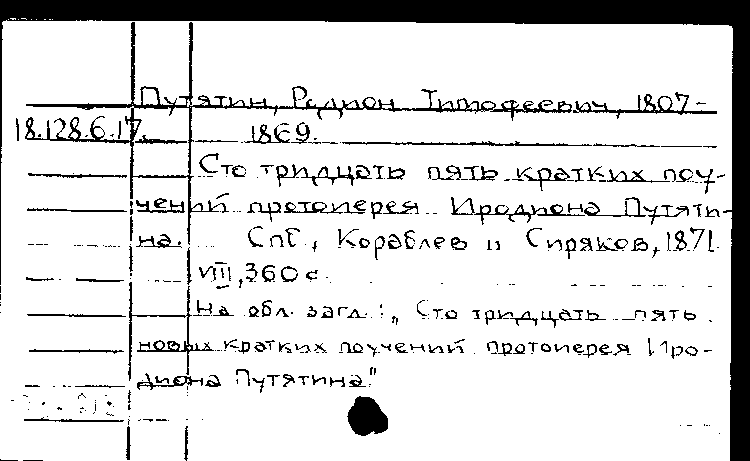 Путятин, Родион Тимофеевич, 1807-
18.128.6.17. 1869.
Сто тридцать пять кратких поу-
чений протоиерея Иродиона Путяти-
на. Спб, Кораблев и Сиряков, 1871.
VIII, 360 с.
На обл. загл.: „Сто тридцать пять
новых кратких поучений протоиерея Иро-
диона Путятина."